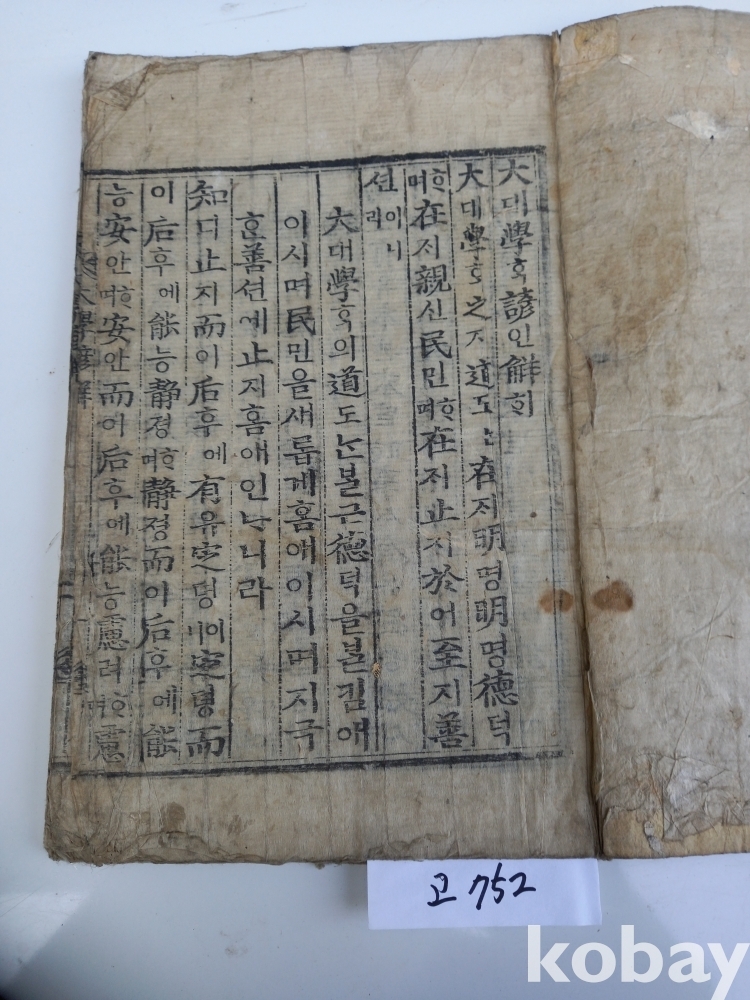 大대學학諺언解ᄒᆡ
大대學학之지道도ᄂᆞᆫ在ᄌᆡ明명明명德덕
ᄒᆞ며在ᄌᆡ親신民민ᄒᆞ며在ᄌᆡ止지於어至지善
션이니라
大대學학의道도ᄂᆞᆫᄇᆞᆯ근德덕을ᄇᆞᆯ킴애
이시며民민을새롭게홈애이시며지극
ᄒᆞᆫ善션에止지홈애인ᄂᆞ니라
知디止지而이后후에有유定뎡이니定뎡而
이后후에能능靜졍ᄒᆞ며靜졍而이后후에能
능安안ᄒᆞ며安안而이后후에能능慮려ᄒᆞ며慮
大學諺解
고 752
kobay